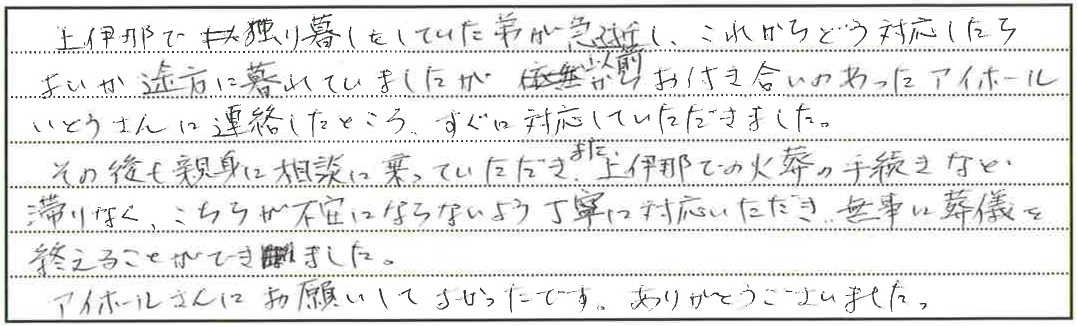 上伊那で独り暮しをしていた弟が急逝し、これからどう対応したら
よいか途方に暮れていましたが 以前からお付き合いのあったアイホール
いとうさんに連絡したところ、すぐに対応していただきました。
その後も親身に相談に乗っていただき、また、上伊那での火葬の手続きなど
滞りなく、こちらが不安にならないよう丁寧に対応いただき、無事に葬儀を
終えることができました。
アイホールさんにお願いしてよかったです。ありがとうございました。